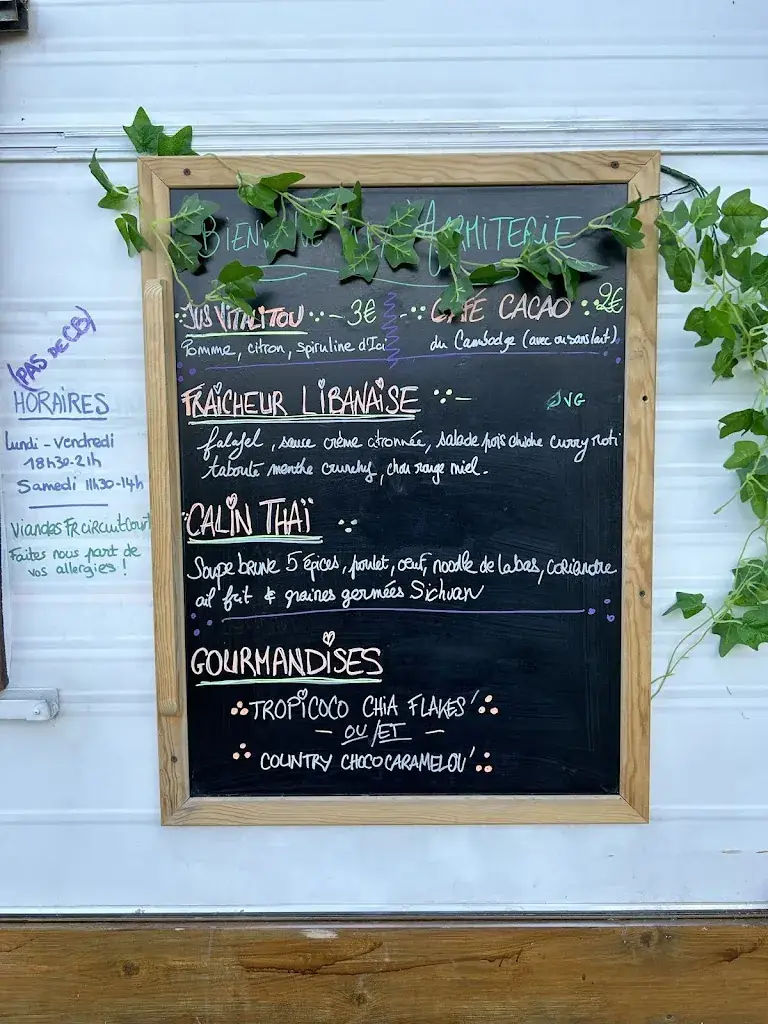 ARMITERIE
JUS VITALITOU - 3€
Pomme, citron, spiruline d'Ici
CAFÉ CACAO 2€
du Cambodge (avec ou sans lait)
FRAÎCHEUR LIBANAISE - VG
falafel, sauce crème citronnée, salade pois chiche curry roti
taboulé menthe crunchy, chou rouge miel.
CALIN THAÏ
Soupe brune 5 épices, poulet, oeuf, noodle de labas, coriandre
ail frit & graines germées Sichuan
GOURMANDISES
TROPICOCO CHIA FLAKES'
- OU/ET -
COUNTRY CHOCOCARAMELOU'
(PAS DE CB)
HORAIRES
Lundi - Vendredi
18h30-21h
Samedi 11h30-14h
Viandes FR circuit court
Faites nous part de
vos allergies !